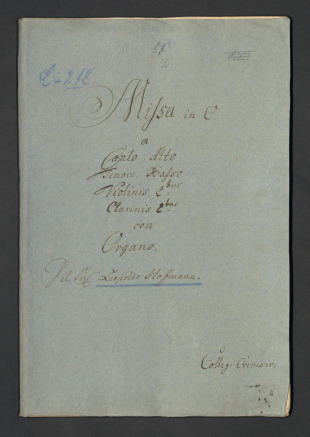 Missa in C
a
Canto, Alto
Tenore, Basso
Violinis 2bus
Clarinis 2bus
con
Organo.
Del Sig: Leopoldo Hoffmann.
Colleg: Cremsir.